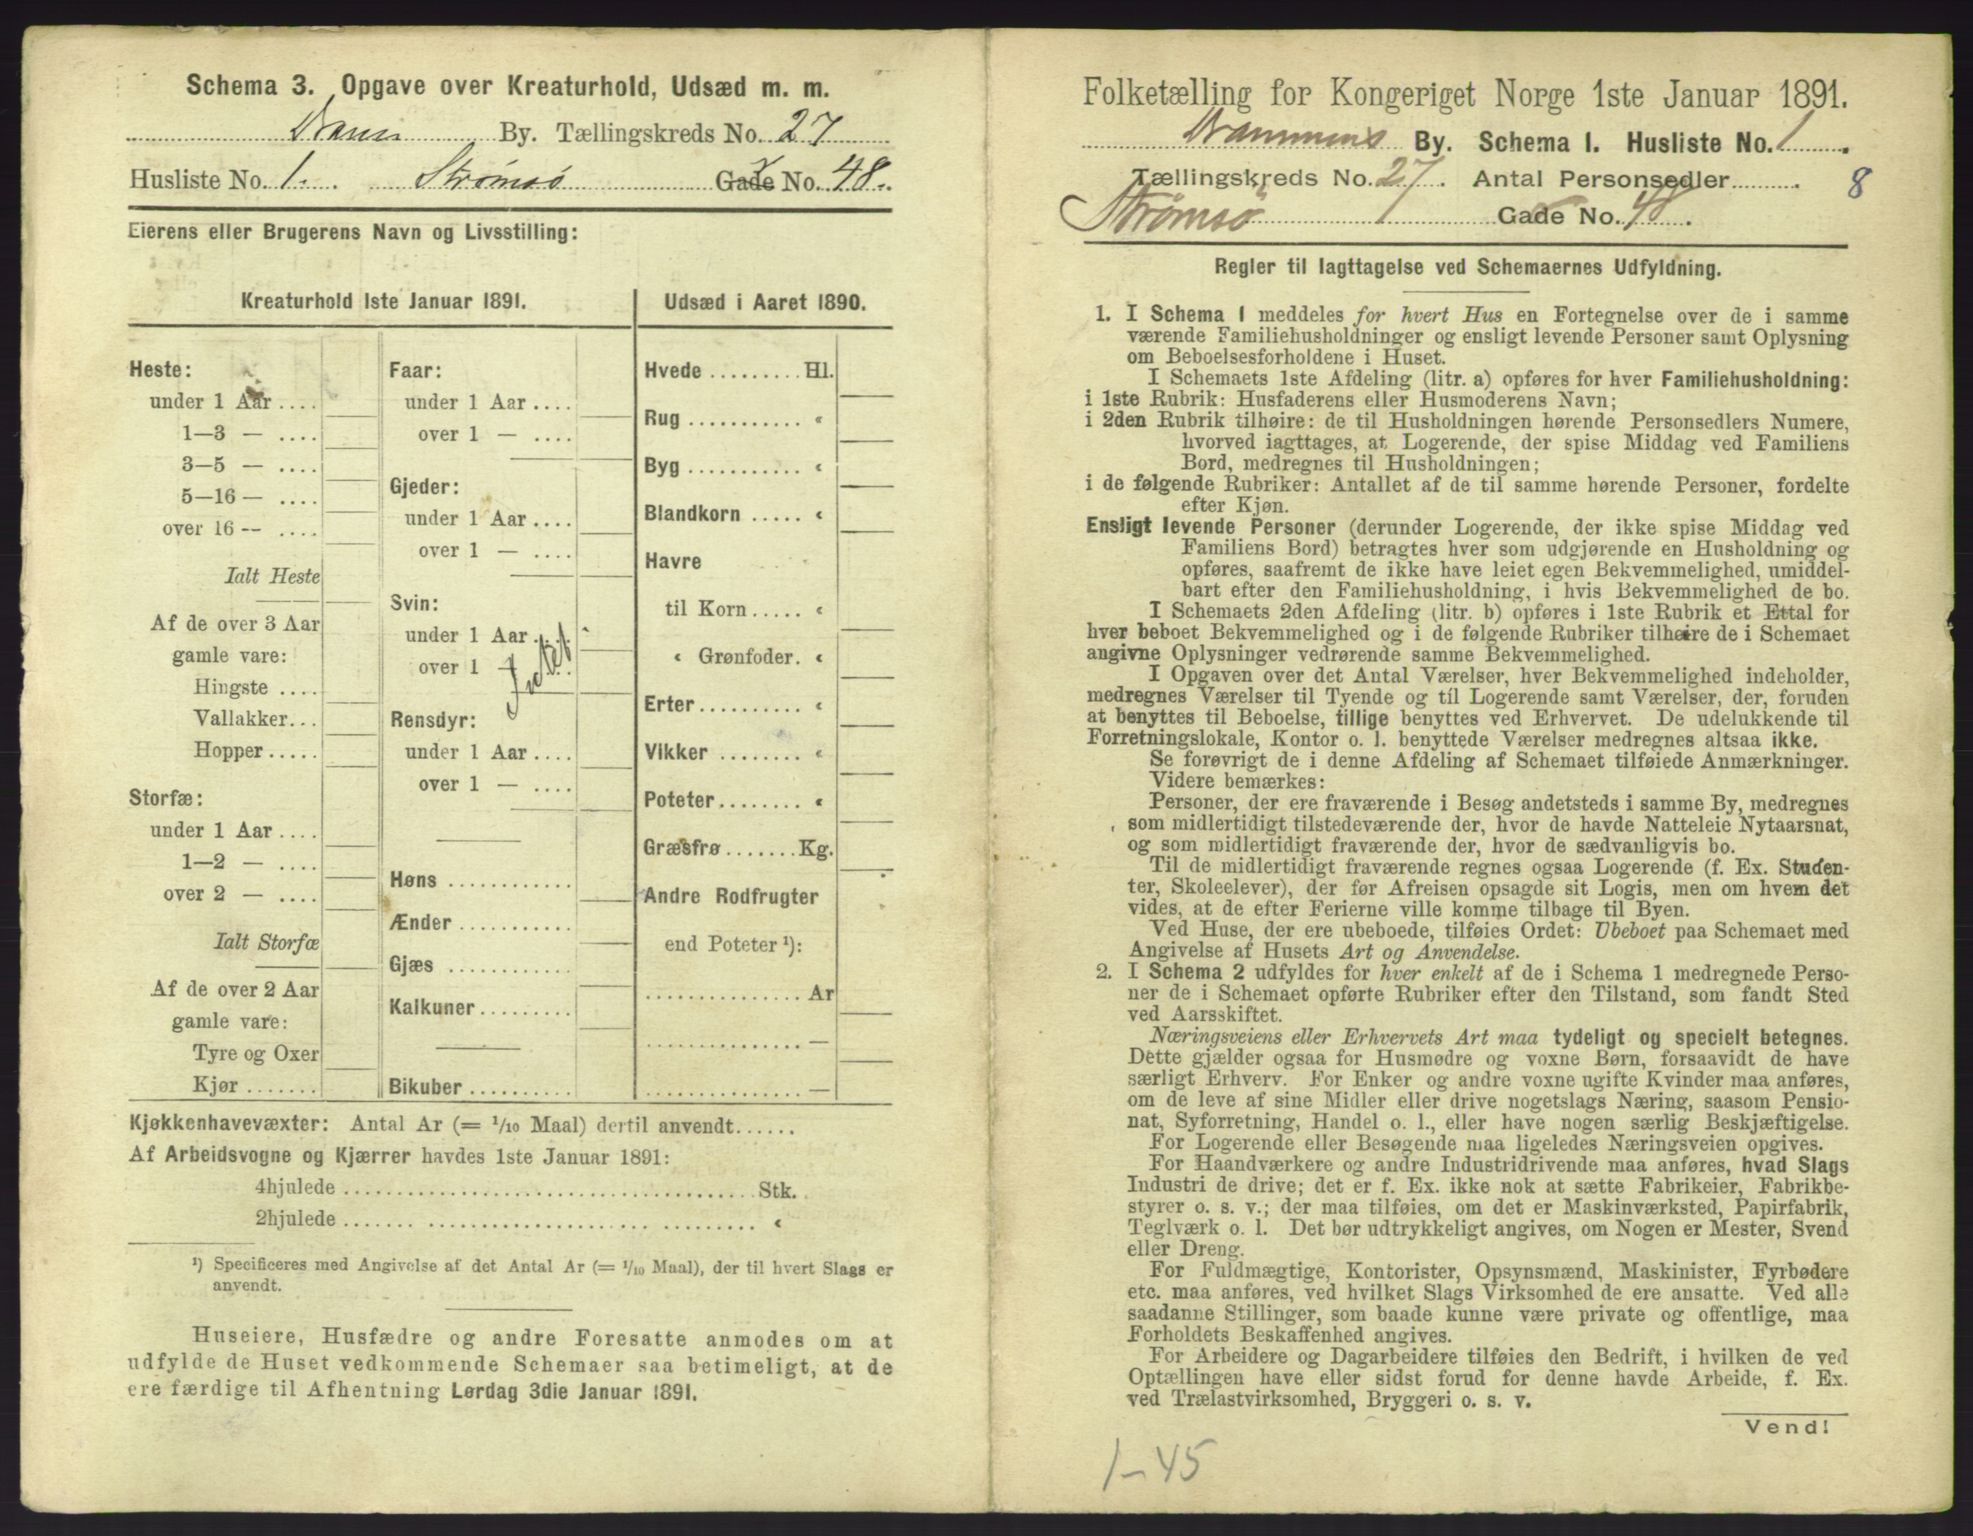 Schema 3. Opgave over Kreaturhold, Udsæd m. m.
Dram By. Tællingskreds No. 27
Husliste No. 1. Strømsø Gade No. 48.
Eierens eller Brugerens Navn og Livsstilling:
Kreaturhold 1ste Januar 1891.
Heste:
under 1 Aar ....
1—3 — ....
3—5 — ....
5—16 — ....
over 16 — ....
Ialt Heste
Af de over 3 Aar
gamle vare:
Hingste ....
Vallakker...
Hopper .....
Storfæ:
under 1 Aar ....
1—2 — ....
over 2 — ....
Ialt Storfæ
Af de over 2 Aar
gamle vare:
Tyre og Oxer
Kjør .......
Faar:
under 1 Aar ....
over 1 — ....
Gjeder:
under 1 Aar ....
over 1 — ....
Svin:
under 1 Aar ....
over 1 — ....
Intet
Rensdyr:
under 1 Aar ....
over 1 — ....
Høns ............
Ænder ...........
Gjæs ............
Kalkuner.........
Bikuber ..........
Udsæd i Aaret 1890.
Hvede ......... Hl.
Rug ........... «
Byg ........... «
Blandkorn ..... «
Havre
til Korn ..... «
« Grønfoder. «
Erter.......... «
Vikker ........ «
Poteter........ «
Græsfrø ....... Kg.
Andre Rodfrugter
end Poteter ¹):
............... Ar
............... —
............... —
Kjøkkenhavevæxter: Antal Ar (= 1/10 Maal) dertil anvendt......
Af Arbeidsvogne og Kjærrer havdes 1ste Januar 1891:
4hjulede ....................................... Stk.
2hjulede ....................................... «
¹) Specificeres med Angivelse af det Antal Ar (= 1/10 Maal), der til hvert Slags er
anvendt.
Huseiere, Husfædre og andre Foresatte anmodes om at
udfylde de Huset vedkommende Schemaer saa betimeligt, at de
ere færdige til Afhentning Lørdag 3die Januar 1891.
Folketælling for Kongeriget Norge 1ste Januar 1891.
Drammens By. Schema I. Husliste No. 1.
Tællingskreds No. 27. Antal Personsedler ......... . 8
Strømsø Gade No. 48.
Regler til Iagttagelse ved Schemaernes Udfyldning.
1. I Schema 1 meddeles for hvert Hus en Fortegnelse over de i samme
værende Familiehusholdninger og ensligt levende Personer samt Oplysning
om Beboelsesforholdene i Huset.
I Schemaets 1ste Afdeling (litr. a) opføres for hver Familiehusholdning:
i 1ste Rubrik: Husfaderens eller Husmoderens Navn;
i 2den Rubrik tilhøire: de til Husholdningen hørende Personsedlers Numere,
hvorved iagttages, at Logerende, der spise Middag ved Familiens
Bord, medregnes til Husholdningen;
i de følgende Rubriker: Antallet af de til samme hørende Personer, fordelte
efter Kjøn.
Ensligt levende Personer (derunder Logerende, der ikke spise Middag ved
Familiens Bord) betragtes hver som udgjørende en Husholdning og
opføres, saafremt de ikke have leiet egen Bekvemmelighed, umiddel-
bart efter den Familiehusholdning, i hvis Bekvemmelighed de bo.
I Schemaets 2den Afdeling (litr. b) opføres i 1ste Rubrik et Ettal for
hver beboet Bekvemmelighed og i de følgende Rubriker tilhøire de i Schemaet
angivne Oplysninger vedrørende samme Bekvemmelighed.
I Opgaven over det Antal Værelser, hver Bekvemmelighed indeholder,
medregnes Værelser til Tyende og til Logerende samt Værelser, der, foruden
at benyttes til Beboelse, tillige benyttes ved Erhvervet. De udelukkende til
Forretningslokale, Kontor o. l. benyttede Værelser medregnes altsaa ikke.
Se forøvrigt de i denne Afdeling af Schemaet tilføiede Anmærkninger.
Videre bemærkes:
Personer, der ere fraværende i Besøg andetsteds i samme By, medregnes
som midlertidigt tilstedeværende der, hvor de havde Natteleie Nytaarsnat,
og som midlertidigt fraværende der, hvor de sædvanligvis bo.
Til de midlertidigt fraværende regnes ogsaa Logerende (f. Ex. Studen-
ter, Skoleelever), der før Afreisen opsagde sit Logis, men om hvem det
vides, at de efter Ferierne ville komme tilbage til Byen.
Ved Huse, der ere ubeboede, tilføies Ordet: Ubeboet paa Schemaet med
Angivelse af Husets Art og Anvendelse.
2. I Schema 2 udfyldes for hver enkelt af de i Schema 1 medregnede Perso-
ner de i Schemaet opførte Rubriker efter den Tilstand, som fandt Sted
ved Aarsskiftet.
Næringsveiens eller Erhvervets Art maa tydeligt og specielt betegnes.
Dette gjælder ogsaa for Husmødre og voxne Børn, forsaavidt de have
særligt Erhverv. For Enker og andre voxne ugifte Kvinder maa anføres,
om de leve af sine Midler eller drive nogetslags Næring, saasom Pensio-
nat, Syforretning, Handel o. l., eller have nogen særlig Beskjæftigelse.
For Logerende eller Besøgende maa ligeledes Næringsveien opgives.
For Haandværkere og andre Industridrivende maa anføres, hvad Slags
Industri de drive; det er f. Ex. ikke nok at sætte Fabrikeier, Fabrikbe-
styrer o. s. v.; der maa tilføies, om det er Maskinværksted, Papirfabrik,
Teglværk o. l. Det bør udtrykkeligt angives, om Nogen er Mester, Svend
eller Dreng.
For Fuldmægtige, Kontorister, Opsynsmænd, Maskinister, Fyrbødere
etc. maa anføres, ved hvilket Slags Virksomhed de ere ansatte. Ved alle
saadanne Stillinger, som baade kunne være private og offentlige, maa
Forholdets Beskaffenhed angives.
For Arbeidere og Dagarbeidere tilføies den Bedrift, i hvilken de ved
Optællingen have eller sidst forud for denne havde Arbeide, f. Ex.
ved Trælastvirksomhed, Bryggeri o. s. v.
Vend!
1-45